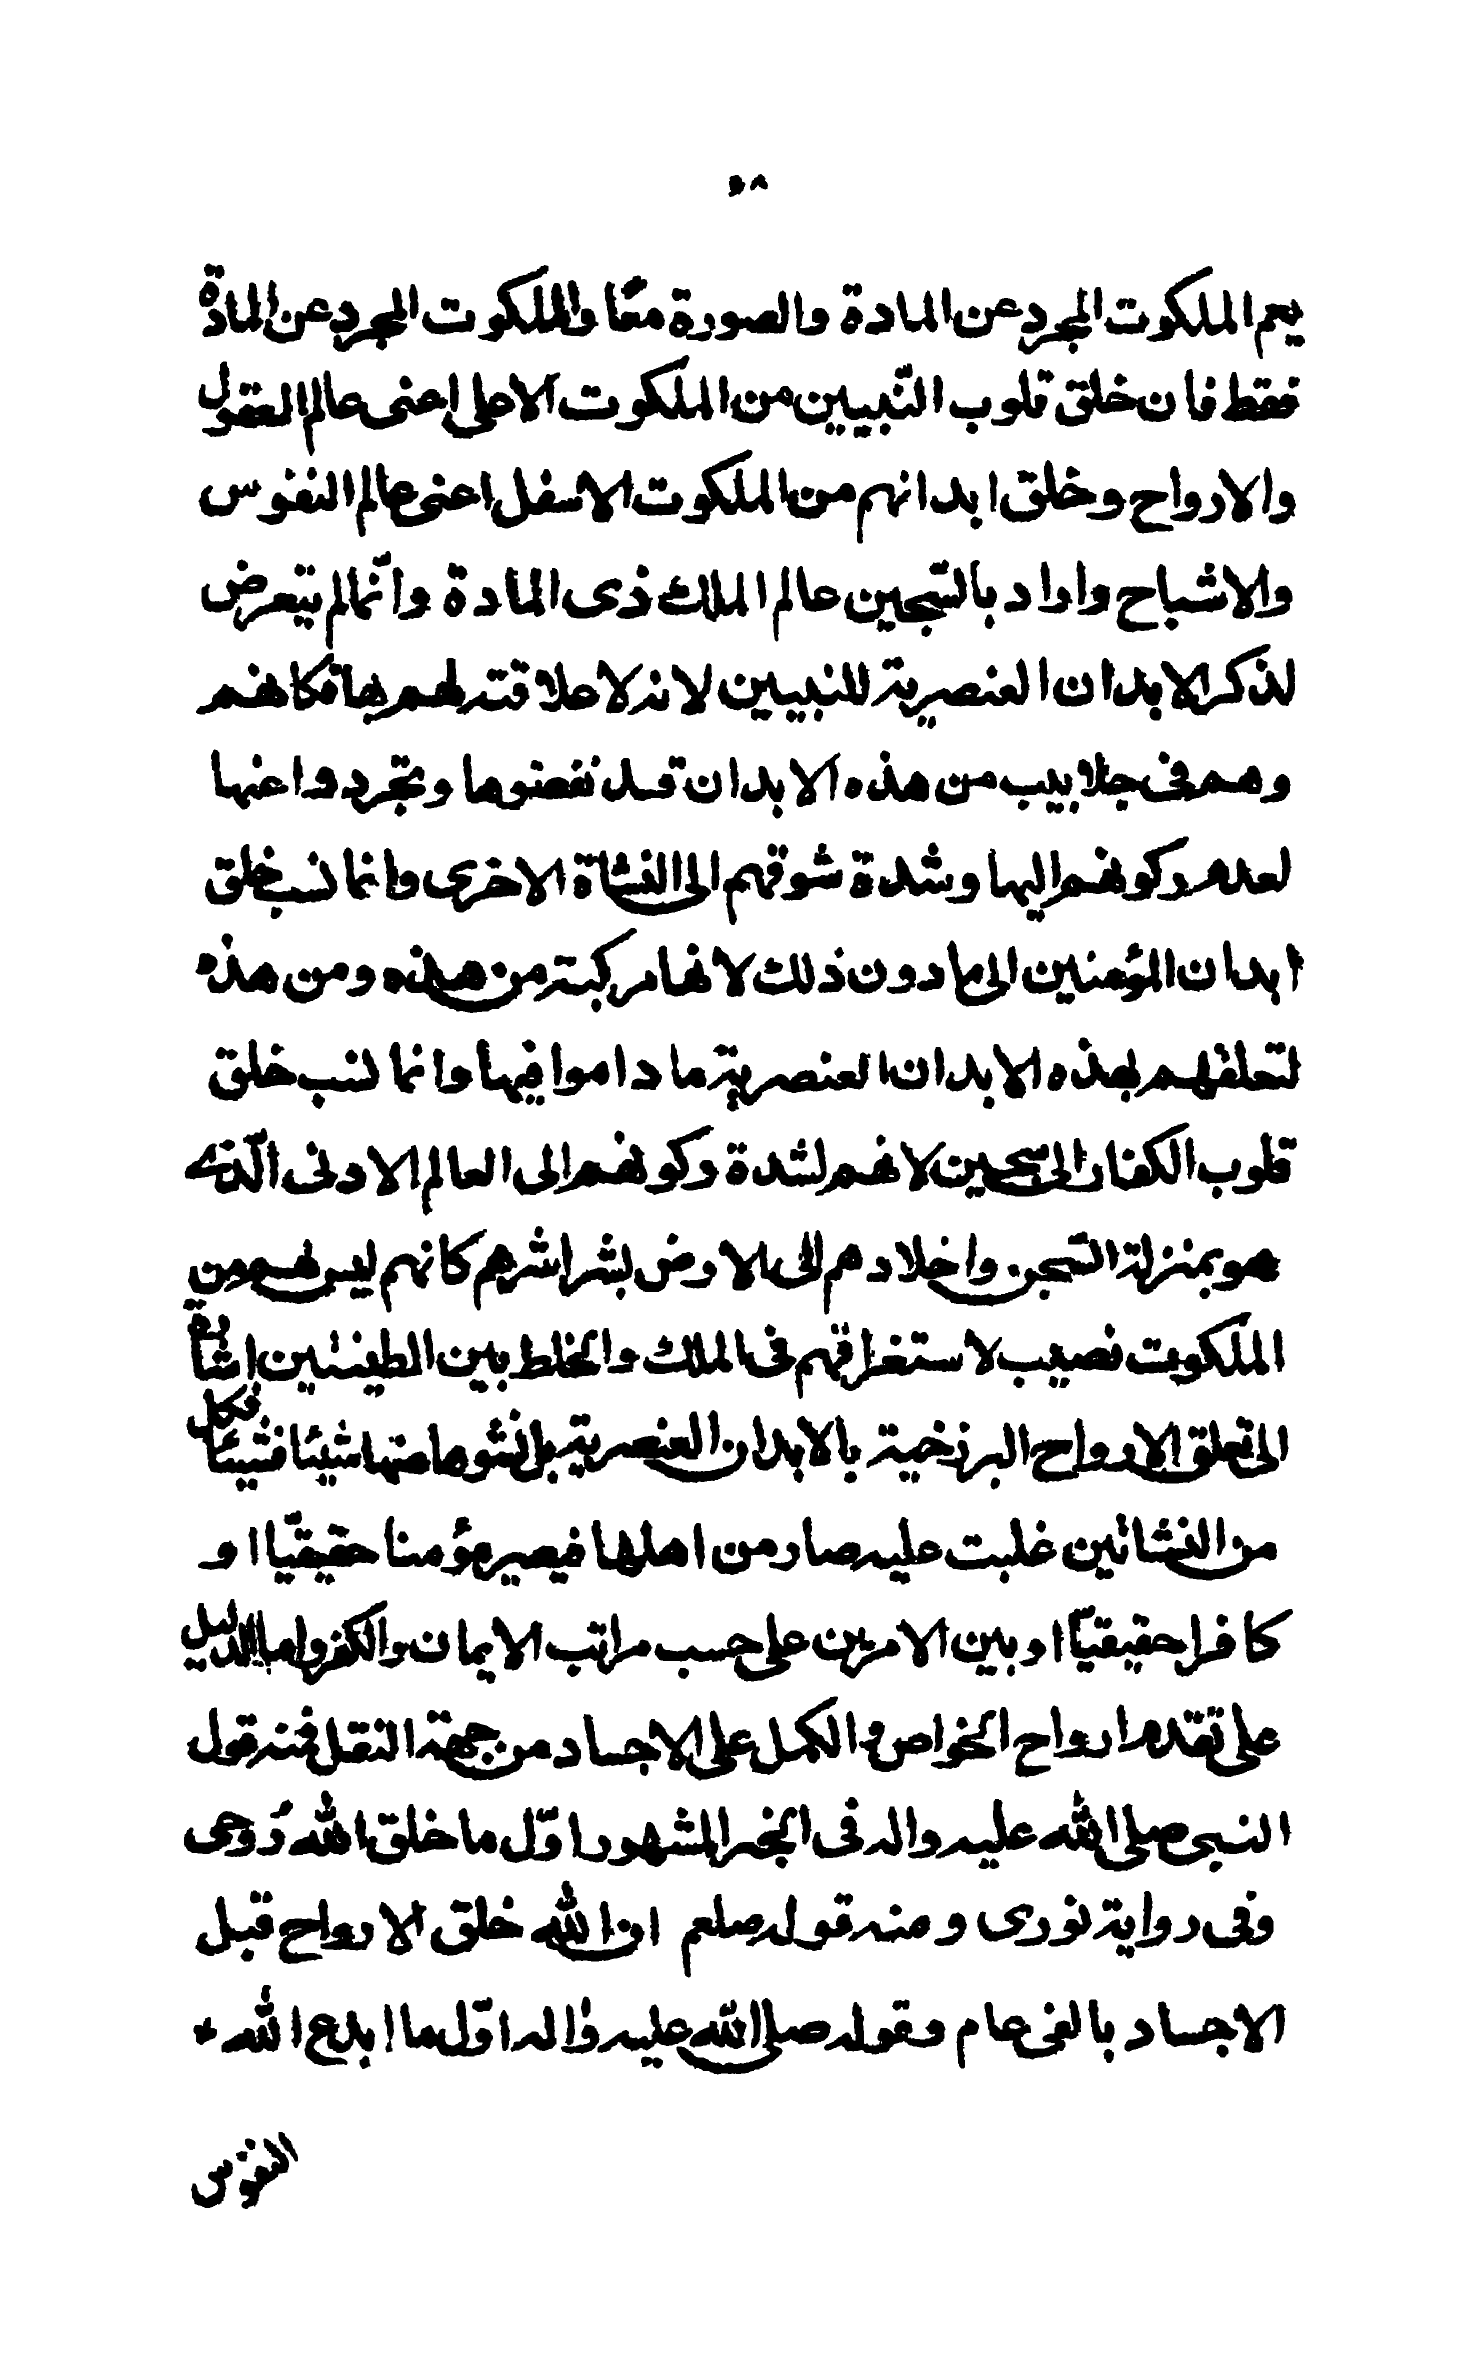 ٥٨
يعم الملكوت المجرد عن المادة والصورة معًا والملكوت المجرد عن المادة
فقط فان خلق قلوب النّبيين من الملكوت الاعلى اعنى عالم العقول
والارواح وخلق ابدانهم من الملكوت الاسفل اعنى عالم النفوس
والاشباح واراد بالسّجين عالم الملك ذى المادة وانّما لم يتعرض
لذكر الابدان العنصرية للنبيين لانه لا علاقة لهم بها فكانهم
وهم فى جلابيب من هذه الابدان قد نفضوها وتجردوا عنها
لعدم ركونهم اليها وشدة شوقهم الى النشاة الاخرى وانما نسب خلق
ابدان المؤمنين الى ما دون ذلك لانها مركبة من هذه ومن هذه
لتعلقهم بهذه الابدان العنصرية ما داموا فيها وانما نسب خلق
قلوب الكفار الى سجين لانهم لشدة ركونهم الى العالم الادنى الّذى
هو بمنزلة السّجن واخلادهم الى الارض بشراشرهم كانهم ليس لهم من
الملكوت نصيب لاستغراقهم فى الملك والخلط بين الطينتين اشارة
الى تعلق الارواح البرزخية بالابدان العنصرية بل نشوها منها شيئا فشيئا فكل
من النشاتين غلبت عليه صار من اهلها فيصير مؤمنا حقيقيّا او
كافرا حقيقيّا او بين الامرين على حسب مراتب الايمان والكفر واما الدليل
على تقدم ارواح الخواص والكمل على الاجساد من جهة النقل فمنه قول
النبى صلى الله عليه واله فى الخبر المشهور اوّل ما خلق الله رُوحى
وفى رواية نورى ومنه قوله صلعم ان الله خلق الارواح قبل
الاجساد بالفى عام وقوله صلى الله عليه واله اوّل ما ابدع الله
النفوس